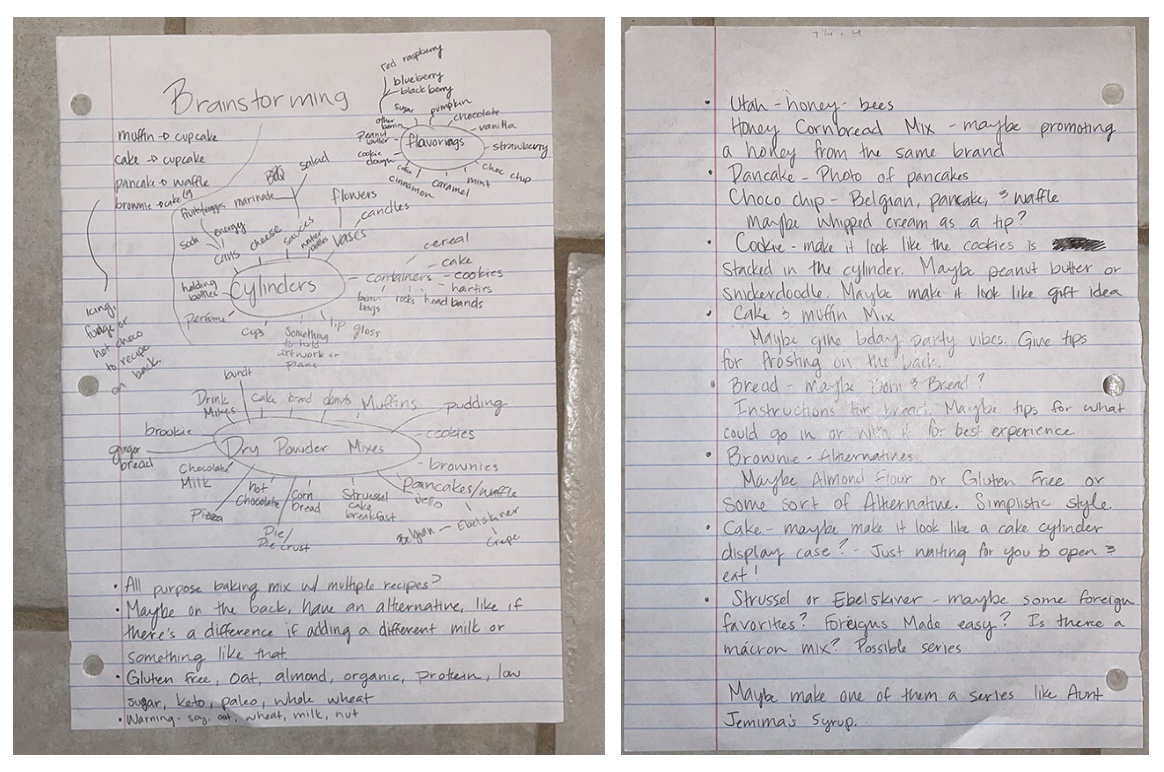 Brainstorming
muffin → cupcake
cake → cupcake
pancake → waffle
brownie → cake
icing,
fudge or
hot choco
to recipe
on back.
red raspberry
blueberry
black berry
sugar
pumpkin
chocolate
vanilla
strawberry
choc chip
mint
caramel
cinnamon
cake
cookie
dough
Peanut
butter
other
flavorings
Cylinders
soda
energy
cans
cheese
sauces
marinade
BBQ
salad
water
bottles
vases
flowers
candles
containers
cereal
cake
cookies
bean
bags
rocks
head bands
lip gloss
Something
to hold
artwork or
plans
cups
perfume
holding
bottles
Dry Powder Mixes
Drink
Mixes
bundt
cake
bread
donuts
Muffins
pudding
cookies
brownies
Pancakes/waffle
Jello
Belgian – Ebelskiver
Crepe
Strussel
cake
breakfast
corn
bread
Pie/
Pie crust
hot
Chocolate
Pizza
Chocolate
Milk
ginger
bread
brookie
• All purpose baking mix w/ multiple recipes?
• Maybe on the back, have an alternative, like if
there's a difference if adding a different milk or
something like that.
• Gluten Free, oat, almond, organic, protein, low
sugar, keto, paleo, whole wheat
• Warning - soy, oat, wheat, milk, nut
• Utah - honey - bees
Honey Cornbread Mix - maybe promoting
a honey from the same brand
• Pancake - Photo of pancakes
Choco chip - Belgian, pancake, & waffle
maybe whipped cream as a tip?
• Cookie - make it look like the cookies is
stacked in the cylinder. Maybe peanut butter or
snickerdoodle. Maybe make it look like gift idea
• Cake & muffin Mix
Maybe give bday party vibes. Give tips
for frosting on the back.
• Bread - maybe Born & Bread?
Instructions for bread. Maybe tips for what
could go in or with it for best experience
• Brownie - Alternatives
Maybe Almond Flour or Gluten Free or
some sort of Alternative. Simplistic style.
• Cake - maybe make it look like a cake cylinder
display case? - Just waiting for you to open &
eat!
• Strussel or Ebelskiver - maybe some foreign
favorites? Foreigns Made easy? Is there a
mácron mix? Possible series
Maybe make one of them a series like Aunt
Jemima's Syrup.